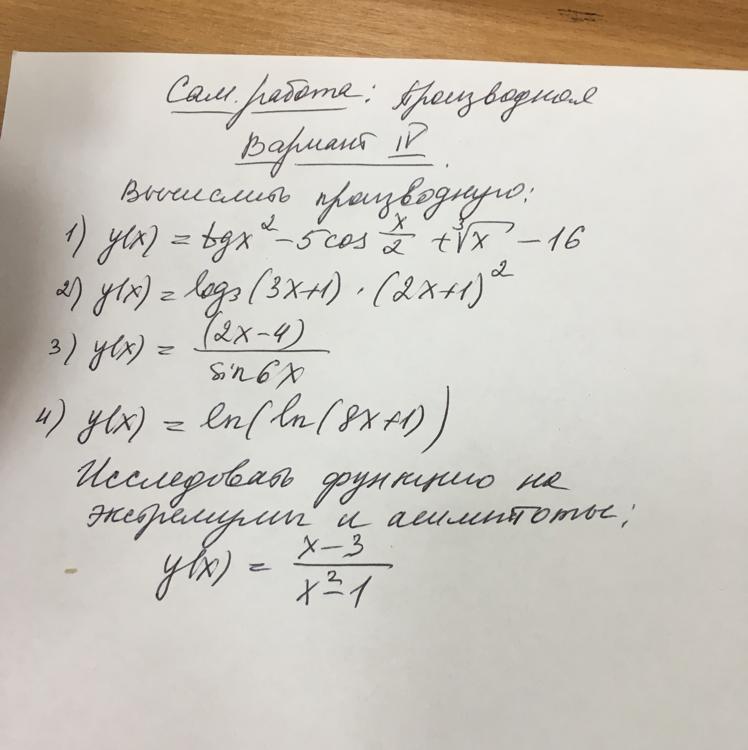 Сам. работа: Производная
Вариант IV.
Вычислить производную:
1) y(x) = tgx² - 5cos x/2 + ∛x - 16
2) y(x) = log₃(3x+1) · (2x+1)²
3) y(x) = (2x-4)/sin6x
4) y(x) = ln(ln(8x+1))
Исследовать функцию на
экстремумы и асимптоты:
y(x) = x-3/x²-1